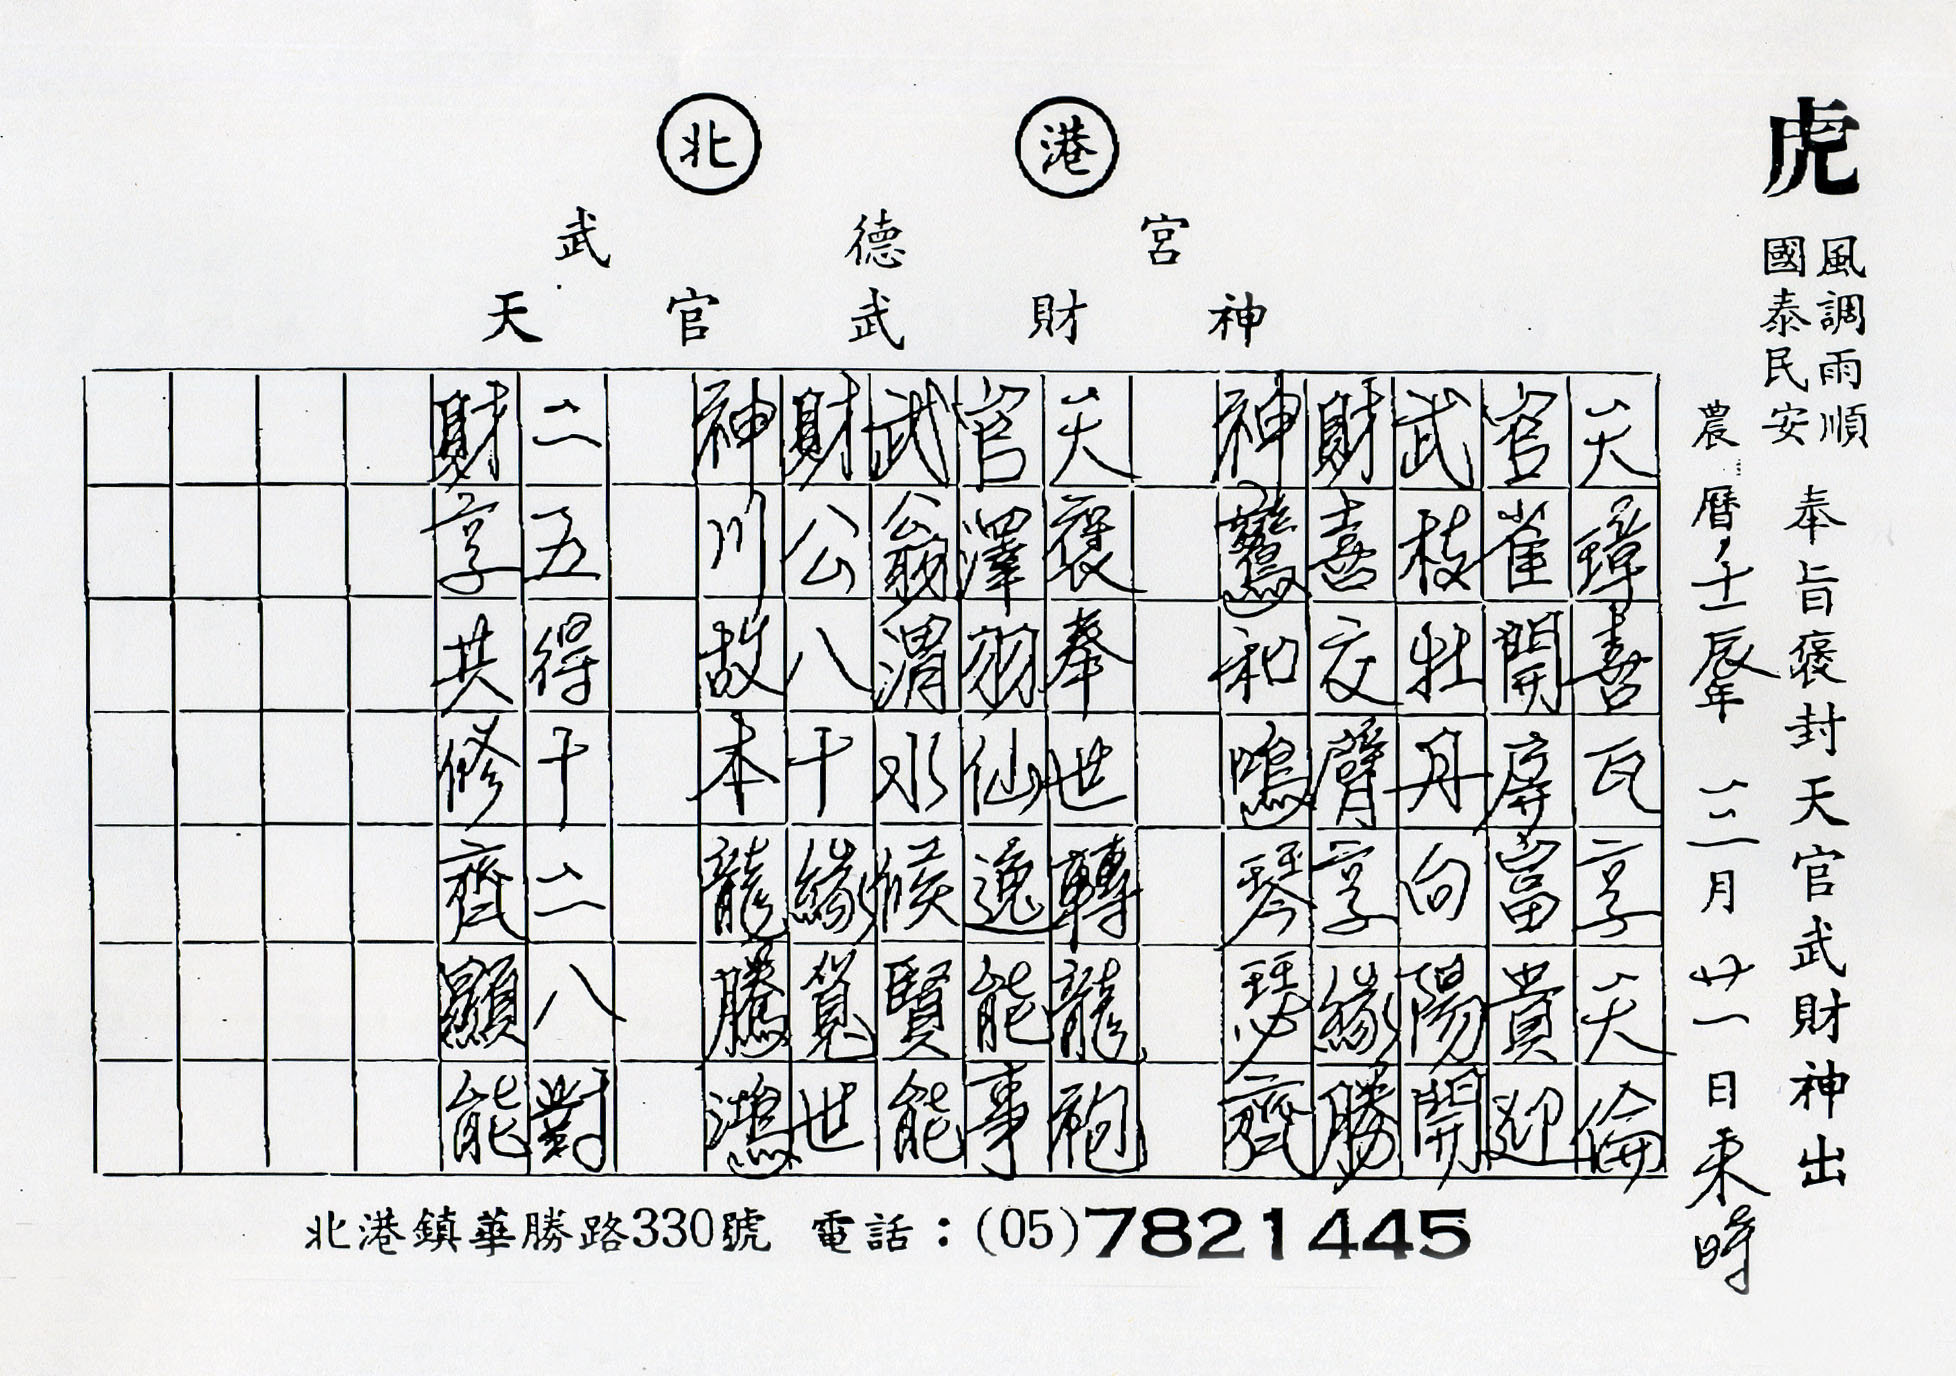 北港
武德宮
天官武財神
虎
風調雨順
國泰民安
奉旨褒封天官武財神出
農曆壬辰年三月廿一日未時
天璋喜瓦享天倫
官雀開屏富貴迎
武枝牡丹向陽開
財喜交臂享緣勝
神鸞和鳴琴瑟齊
天褒奉世轉龍袍
官澤羽仙逸能事
武翁渭水候賢能
財公八十緣覓世
神川故本龍騰鴻
二五得十二八對
財享共修齊顯能
北港鎮華勝路330號 電話：(05)7821445